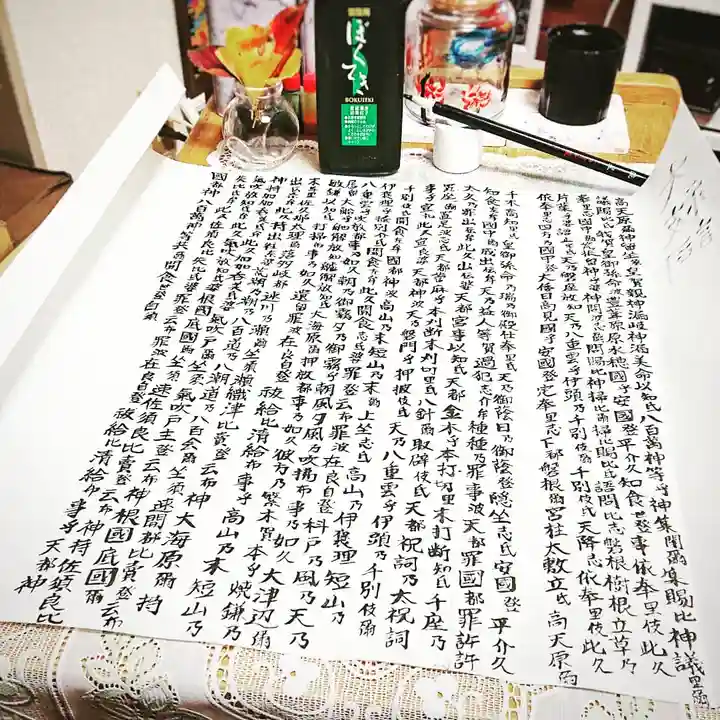 ぼくてき
BOKUTEKI
高天原爾神留坐須皇賀親神漏岐神漏美命以知氐八百萬神等乎神集閉爾集賜比神議里爾
議賜比氐我賀皇御孫命波豊葦原水穂國乎安國登平介久知食世登事依奉里伎此久
依奉里志國中爾荒振留神等乎婆神問波志爾問賜比神掃比爾掃比賜比氐語問比志磐根樹根立草乃
片葉乎母語止米氐天乃磐座放知天乃八重雲乎伊頭乃千別伎爾千別伎氐天降志依奉里伎此久
依奉里志四方乃國中登大倭日高見國乎安國登定奉里氐下都磐根爾宮柱太敷立氐高天原爾
千木高知里氐皇御孫命乃瑞乃御殿仕奉里氐天乃御蔭日乃御蔭登隠坐志氐安國登平介久
知食左牟國中爾成出伝牟天乃益人等賀過犯志介牟種種乃罪事波天都罪國都罪許許
太久乃罪出伝牟此久出伝婆天都宮事以知氐天都金木乎本打切里末打断知氐千座乃
置座爾置足波志氐天都菅麻乎本刈断末刈切里氐八針爾取辟伎氐天都祝詞乃太祝詞
事乎宣礼此久宣良婆天都神波天乃磐門乎押披伎氐天乃八重雲乎伊頭乃千別伎爾
千別伎氐聞食左牟國都神波高山乃末短山乃末爾上坐志氐高山乃伊褒理短山乃
伊褒理乎掻別介氐聞食左牟此久聞食志氐婆罪登云布罪波在良自登科戸乃風乃天乃
八重雲乎吹放都事乃如久朝乃御霧夕乃御霧乎朝風夕風乃吹拂布事乃如久大津辺爾
居留大船乎舳解放知艫解放知氐大海原爾押放都事乃如久彼方乃繁木賀本乎焼鎌乃
敏鎌以知氐打掃布事乃如久遺留罪波在良自登祓給比清給布事乎高山乃末短山乃
末与里佐久那太理爾落多岐都速川乃瀬爾坐須瀬織津比賣登云布神大海原爾持
出伝奈牟此久持出往奈婆荒潮乃潮乃八百道乃八潮道乃潮乃八百会爾坐須速開都比賣登云布
神持加加呑美氐牟此久加加呑美氐婆気吹戸爾坐須気吹戸主登云布神根國底國爾
気吹放知氐牟此久気吹放知氐婆根國底國爾坐須速佐須良比賣登云布神持佐須良比
失比氐牟此久佐須良比失比氐婆罪登云布罪波在良自登祓給比清給布事乎天都神
國都神八百萬神等共爾聞食世登白須